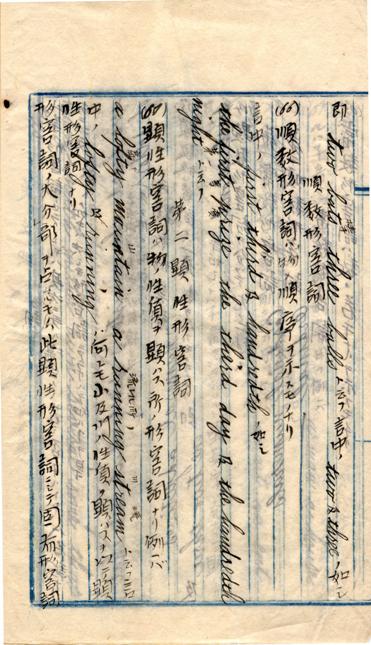 即 two hats three balls ト云フ言中、two & three, 如シ
順数形容詞
(66) 順数形容詞ハ物ノ順序ヲ示スモノナリ
言中、first third & hundredth, 如シ
the first prize the third day & the hundredth
night ト云フ
第二 顕性形容詞
(67) 顕性形容詞ハ物ノ性質ヲ顕ハス所ノ形容詞ナリ例ヘバ
a lofty mountain a running stream ト云フ言
中、lofty 及 running ハ何レモ山及川ノ性質ヲ顕ハスヲ以テ顕
性形容詞ナリ
形容詞ノ大部分ヲ占ムルモノハ此顕性形容詞ニシテ固有形容詞